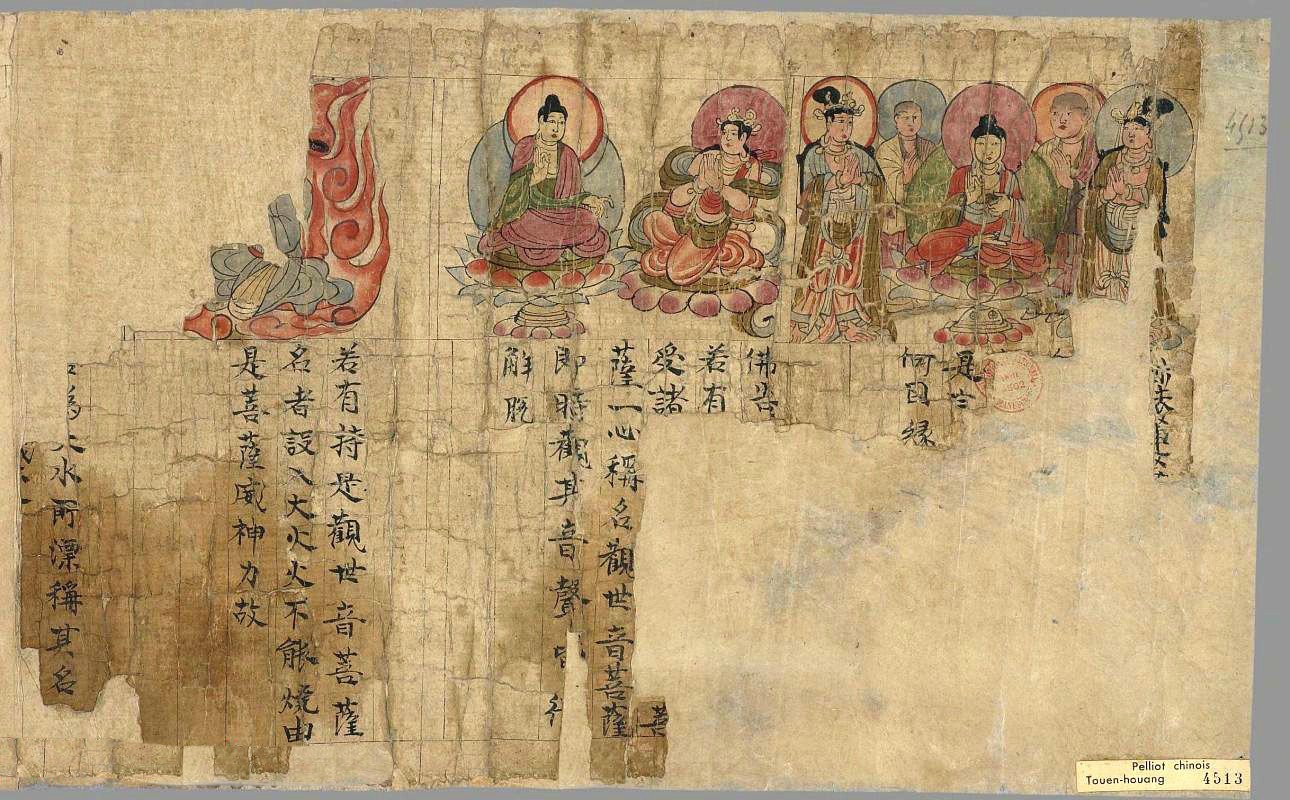 何因緣
佛告
若有
受諸 菩
薩一心稱名觀世音菩薩
即時觀其音聲皆
解脫
若有持是觀世音菩薩
名者設入大火火不能燒由
是菩薩威神力故
為大水所漂稱其名
4513
Pelliot chinois
Touen-houang 4513